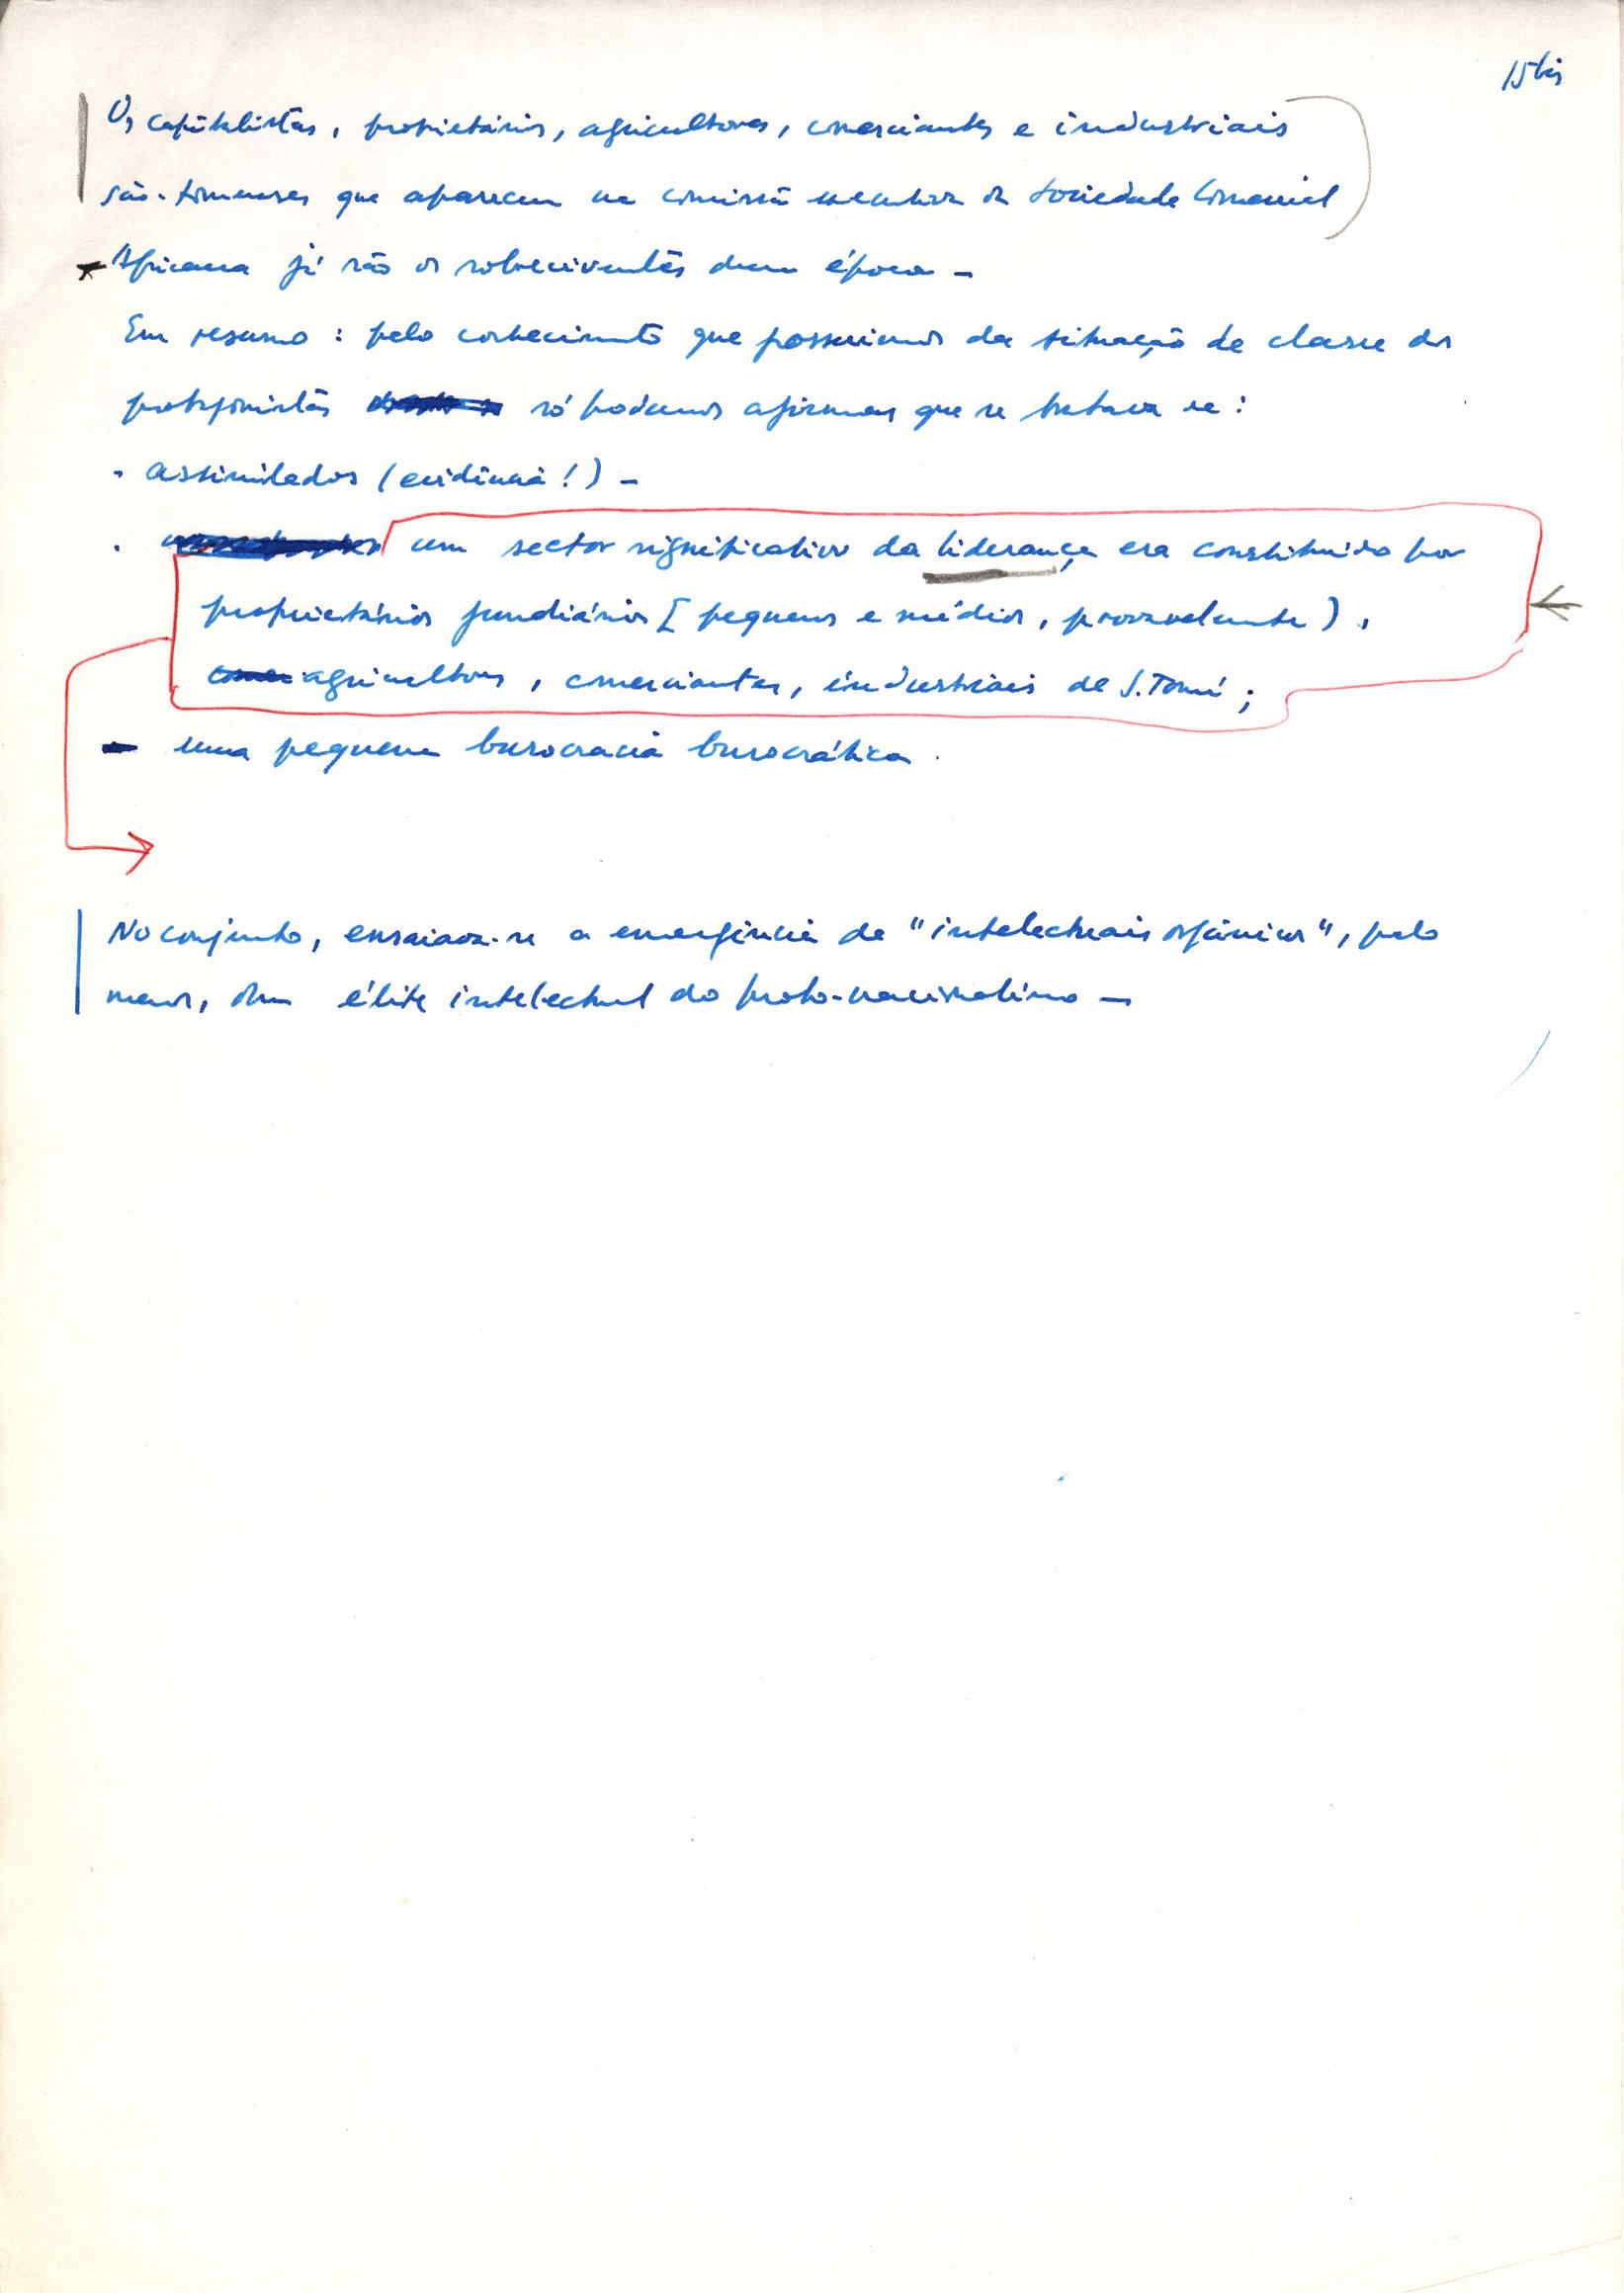 15 bis
Os capitalistas, proprietários, agricultores, comerciantes e industriais
são-tomenses que aparecem na comissão executiva da Sociedade Comercial
Africana já são os sobreviventes duma época -
Em resumo : pelo conhecimento que possuimos da situação de classe dos
protagonistas só podemos afirmar que se tratava de :
. assimilados (evidência !) -
. um sector significativo da liderança era constituido por
proprietários fundiários [ pequenos e médios, provavelmente ) ,
agricultores , comerciantes, industriais de S. Tomé ;
- uma pequena burocracia burocrática .
No conjunto, ensaiava-se a emergência de "intelectuais orgânicos", pelo
menos, duma élite intelectual do proto-nacionalismo -